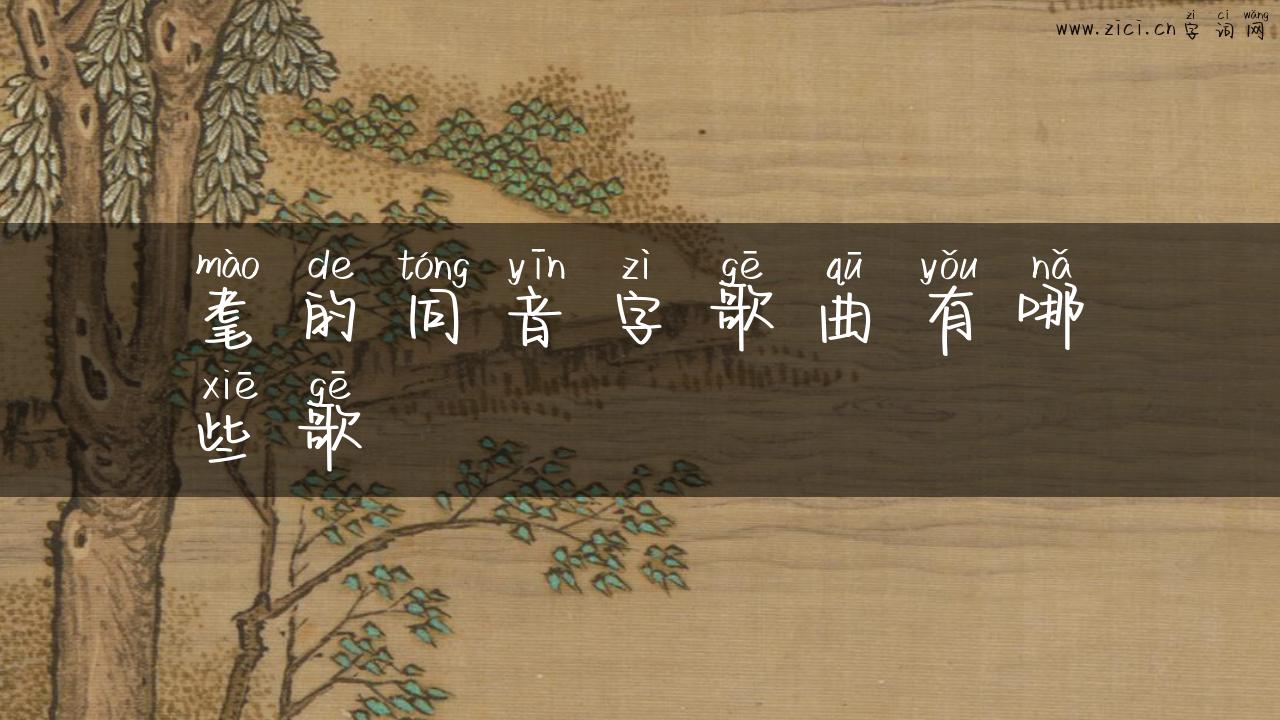 zì cí wǎng
www.zici.cn 字词网
mào de tóng yīn zì gē qū yǒu nǎ
耄的同音字歌曲有哪
xiē gē
些歌